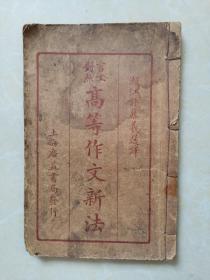 湖江許慕羲選譯
言文對照
高等作文新法
上海廣益書局發行